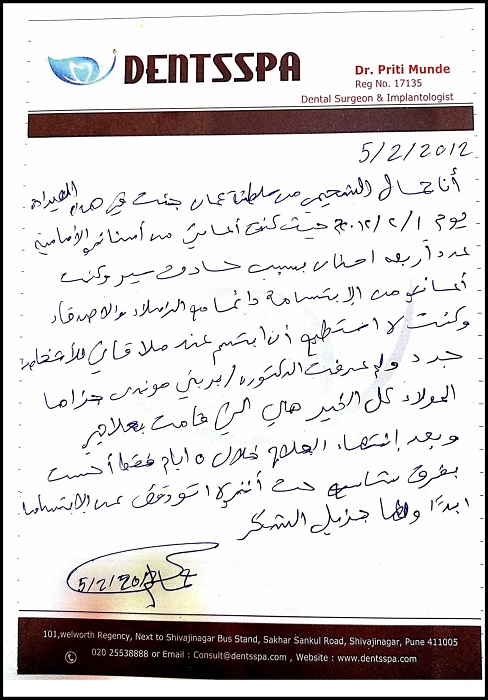 DENTSSPA
Dr. Priti Munde
Reg No. 17135
Dental Surgeon & Implantologist
5/2/2012
أنا جمال الشحيمي من سلطنة عمان جئت في هذه العيادة
يوم ٢٠١٢/٢/١ حيث كنت أعاني من أسناني الأمامية
عدد أربعة أسنان بسبب حادث سير وكنت
أعاني من الإبتسامة دائما مع الزملاء والأصدقاء
وكنت لا استطيع أن ابتسم عند ملاقاتي للأشخاص
جدد ولم عرفت الدكتورة / بريتي موندى جزاها
المولاء كل الخير هي التي قامت بعلاجي
وبعد إنتهاء العلاج خلال ٥ ايام فقط أحسست
بفرق شاسع حيث أنني لا اتوقف عن الإبتسامة
ابدًا ولها جزيل الشكر
5/2/2012
101,welworth Regency, Next to Shivajinagar Bus Stand, Sakhar Sankul Road, Shivajinagar, Pune 411005
020 25538888 or Email : Consult@dentsspa.com , Website : www.dentsspa.com